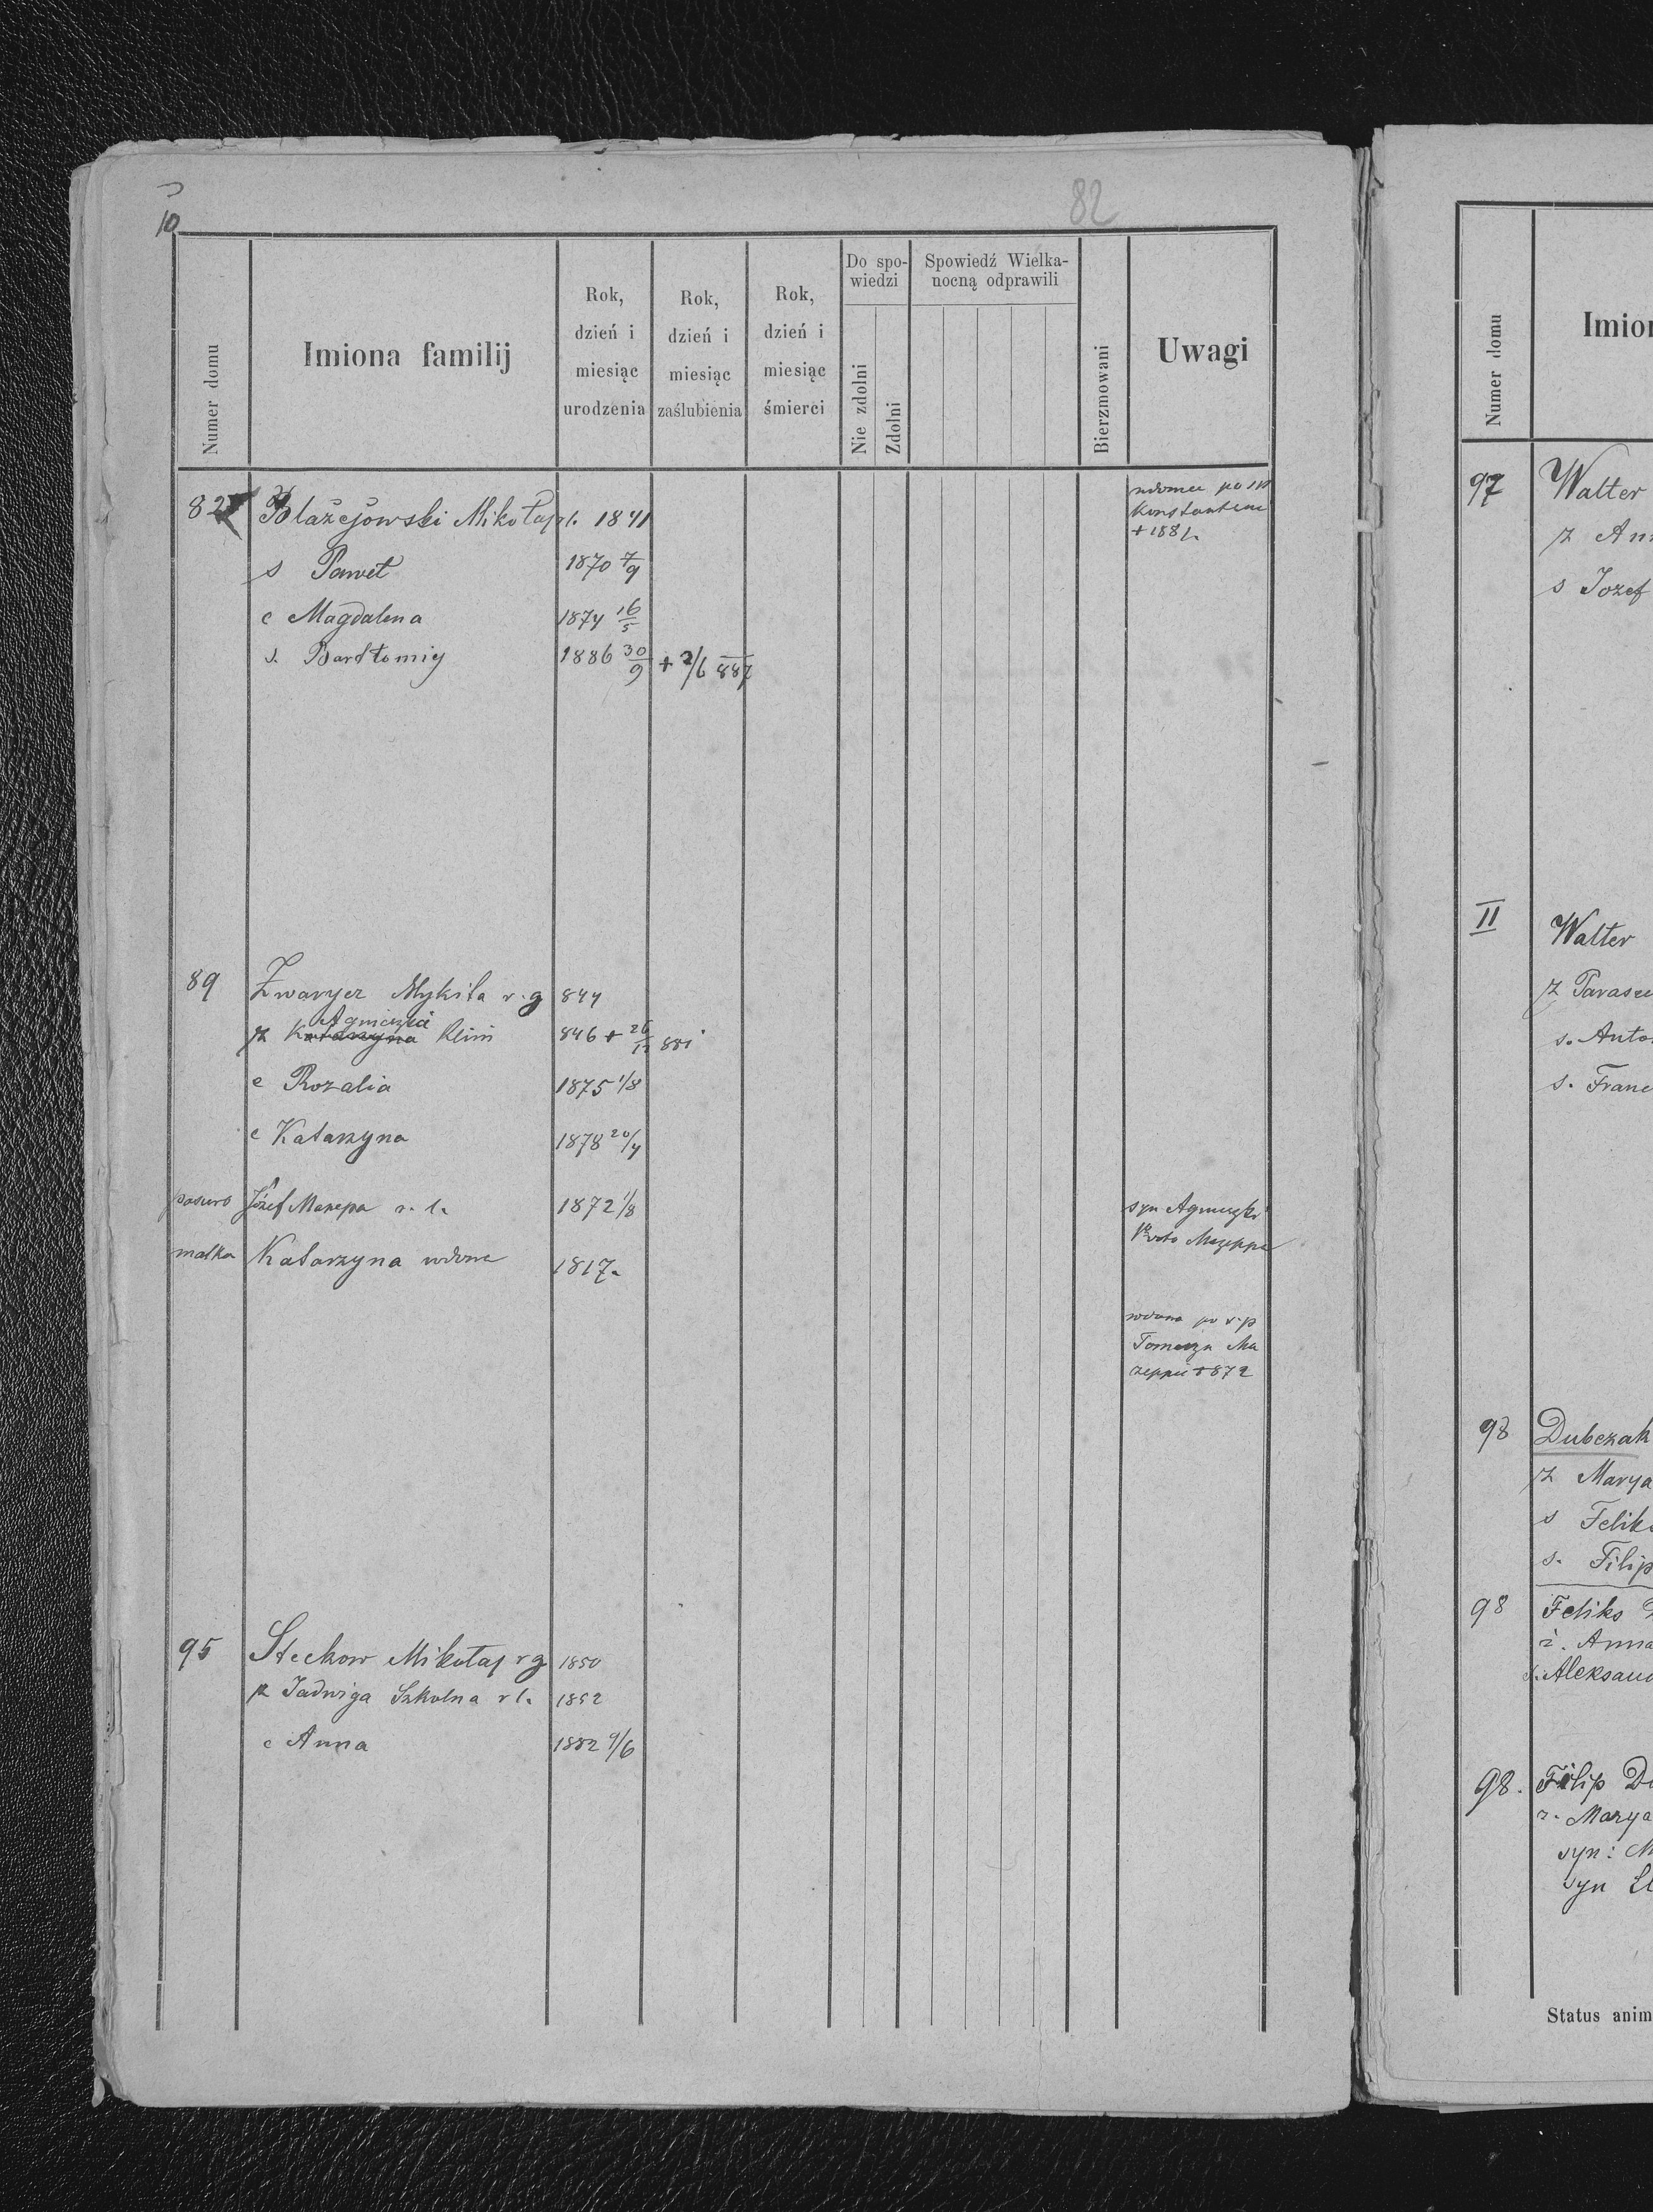 10
82
Numer domu
Imiona familij
Rok, dzień i miesiąc urodzenia
Rok, dzień i miesiąc zaślubienia
Rok, dzień i miesiąc śmierci
Do spowiedzi
Nie zdolni
Zdolni
Spowiedź Wielkanocną odprawili
Bierzmowani
Uwagi
82 Błażejowski Mikołaj r.l. 1841
+ 1881.
s Paweł 1870 7/9
c Magdalena 1874 16/5
s. Bartłomiy 1886 30/9 + 2/6 887
89 Zwaryez Mykita r.g 844
Agnieszka
ż Katarzyna Klim 846 +
c Rozalia 1875 1/8
c Katarzyna 1878 20/4
Józef Mazepa r. l. 1872 1/8 syn Agnieszki
Mazeppa
matka Katarzyna wdowa 1817.
wdowa po ś.p
Tomaszu Ma
zeppie + 872
95 Steckow Mikołaj r g 1850
ż Jadwiga Szkolna r l. 1852
c Anna 1882 9/6
Numer domu
Imion
97 Walter
ż Ann
s Jozef
II Walter
ż Parasze
s. Anto
s. Franc
98 Dubczak
ż Marya
s Feliks
s. Filip
98 Feliks D
ż. Anna
s. Aleksand
98. Filip Du
ż. Marya
syn: M
syn
Status anim